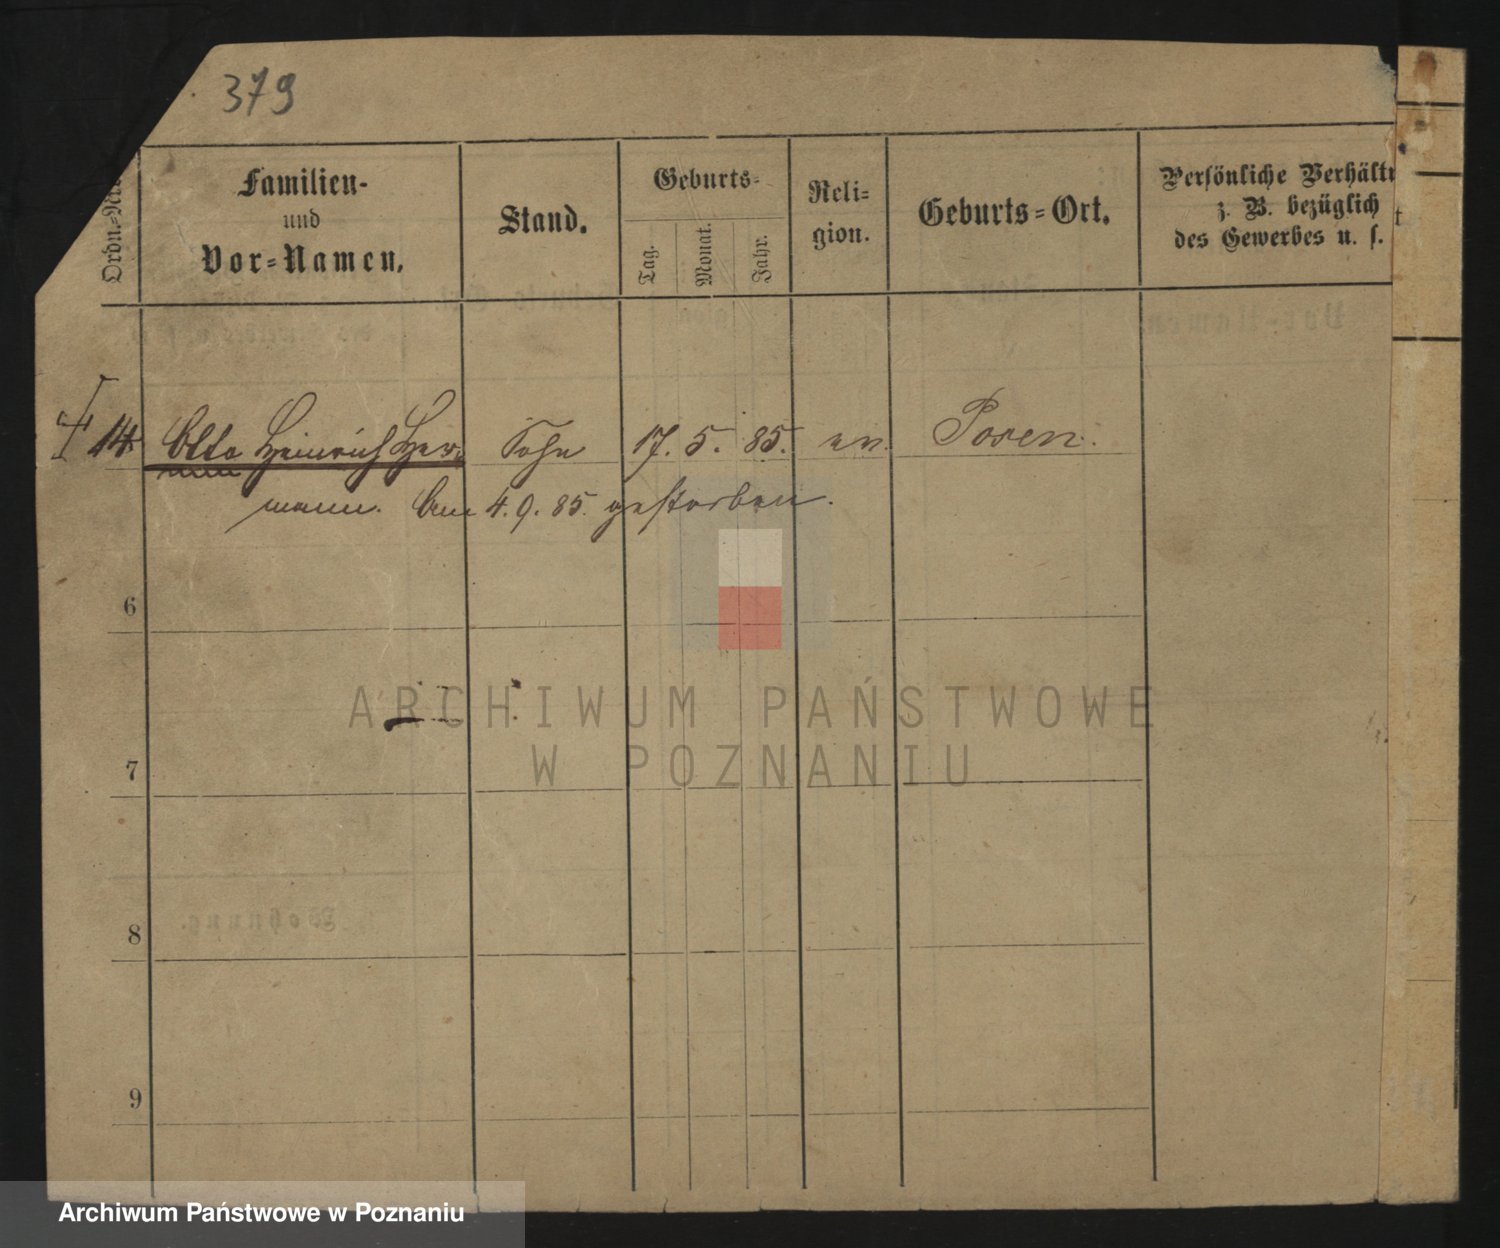 379
Ordn.-Nr.
Familien-
und
Vor-Namen.
Stand.
Geburts-
Tag.
Monat.
Jahr.
Reli-
gion.
Geburts-Ort.
Persönliche Verhält
z. B. bezüglich
des Gewerbes u. s.
t
14 Otto Heinrich Her- Sohn 17. 5. 85. ev. Posen.
mann. Am 4. 9. 85. gestorben.
6
ARCHIWUM PAŃSTWOWE
W POZNANIU
7
8
9
Archiwum Państwowe w Poznaniu